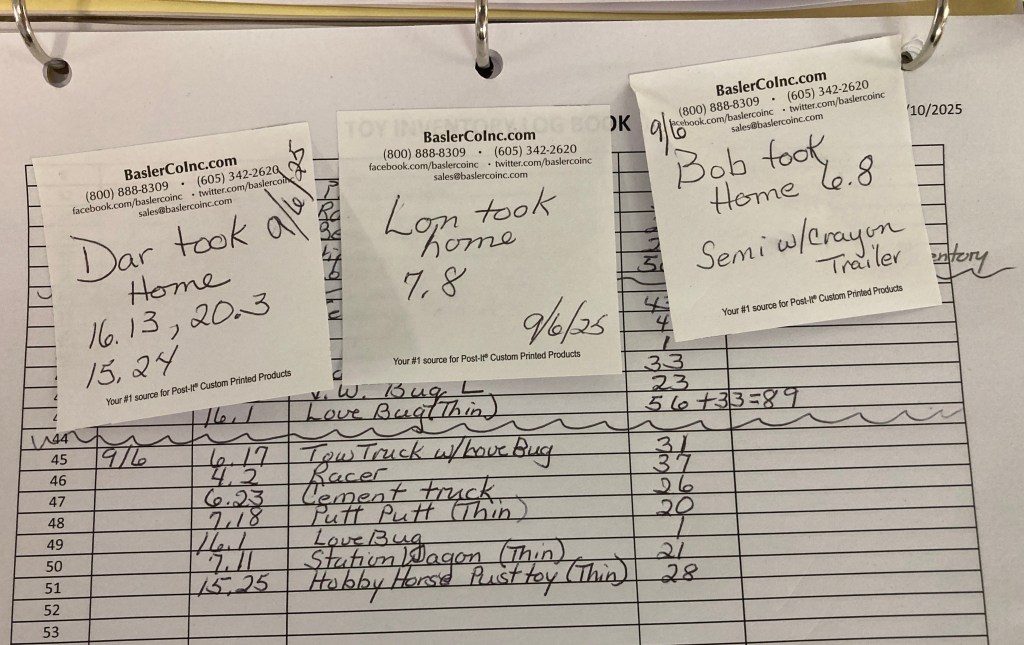 TOY INVENTORY LOG BOOK
/10/2025
BaslerCoInc.com
(800) 888-8309 • (605) 342-2620
facebook.com/baslercoinc • twitter.com/baslercoinc
sales@baslercoinc.com
9/6/25
Dar took
Home
16.13, 20.3
15.24
Your #1 source for Post-It® Custom Printed Products
BaslerCoInc.com
(800) 888-8309 • (605) 342-2620
facebook.com/baslercoinc • twitter.com/baslercoinc
sales@baslercoinc.com
Lon took
home
7.8
9/6/25
Your #1 source for Post-It® Custom Printed Products
BaslerCoInc.com
(800) 888-8309 • (605) 342-2620
facebook.com/baslercoinc • twitter.com/baslercoinc
sales@baslercoinc.com
9/6
Bob took
Home 6.8
Semi w/Crayon
Trailer
Your #1 source for Post-It® Custom Printed Products
entory
33
V.W. Bug L 23
16.1 Love Bug (Thin) 56+33=89
44
45 9/6 6.17 Tow Truck w/Love Bug 31
46 4.2 Racer 37
47 6.23 Cement truck 26
48 7.18 Putt Putt (Thin) 20
49 16.1 Love Bug 1
50 7.11 Station Wagon (Thin) 21
51 15.25 Hobby Horse Pust toy (Thin) 28
52
53